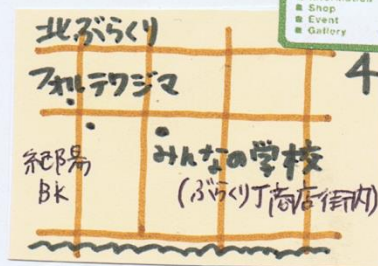 Shop
Event
Gallery
4
北ぶらくり
フォルテワジマ
紀陽
BK
みんなの学校
(ぶらくり丁商店街内)